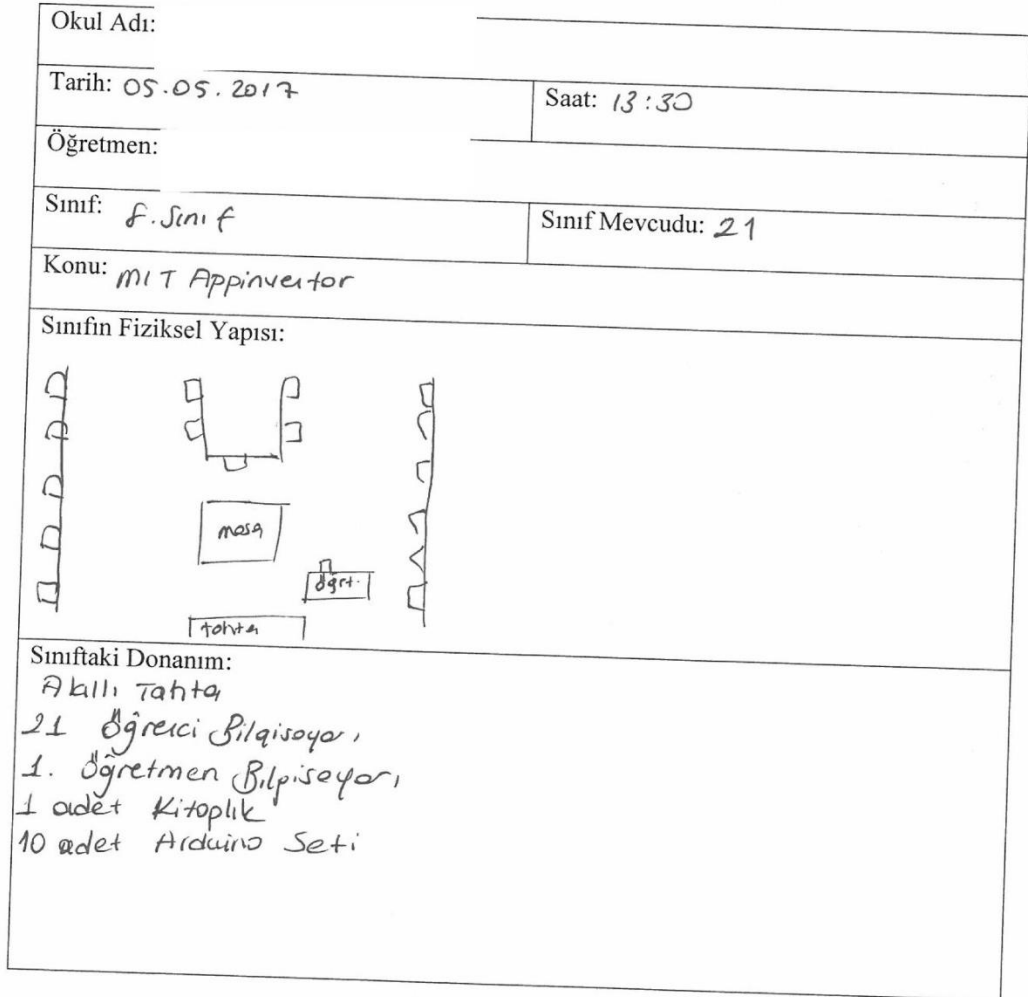 Okul Adı:
Tarih: 05.05.2017
Saat: 13:30
Öğretmen:
Sınıf: 8.Sınıf
Sınıf Mevcudu: 21
Konu: MIT Appinventor
Sınıfın Fiziksel Yapısı:
masa
öğrt.
tahta
Sınıftaki Donanım:
Akıllı Tahta
21 Öğrenci Bilgisayarı
1. Öğretmen Bilgisayarı
1 adet Kitaplık
10 adet Arduino Seti